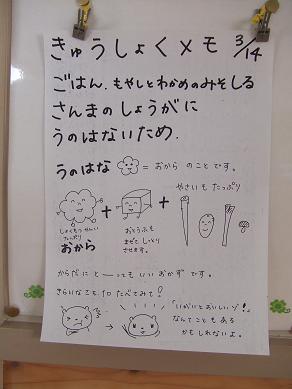 きゅうしょくメモ 3/14
ごはん. もやしとわかめのみそしる
さんまのしょうがに
うのはないため.
うのはな = おから のことです。
やさいもたっぷり
しょくもつせんい
たっぷり
おから
+
おとうふも
まぜてしっとり
させます。
+
からだにとーってもいいおかずです。
きらいなこも 1口たべてみて!
「いがいとおいしいゾ!」
なんてこともある
かもしれないよ。